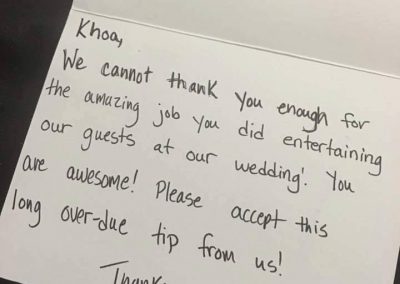 Khoa,
We cannot thank you enough for
the amazing job you did entertaining
our guests at our wedding! You
are awesome! Please accept this
long over-due tip from us!